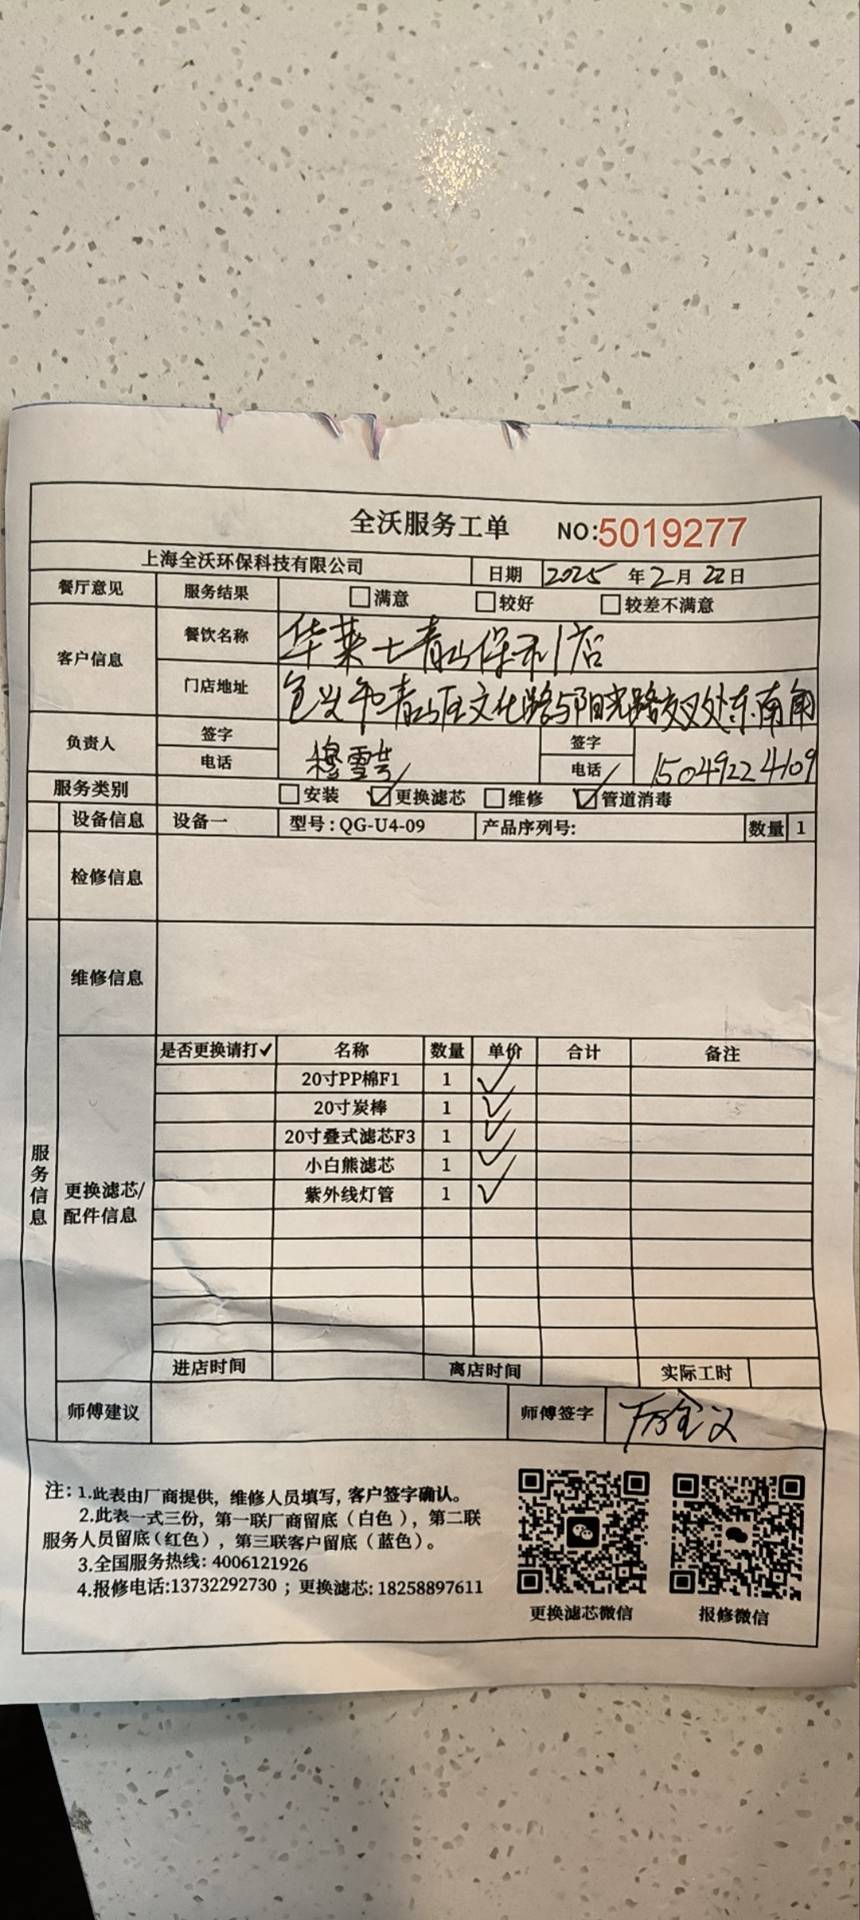 全沃服务工单 NO:5019277
上海全沃环保科技有限公司 日期 2025 年 2 月 22 日
餐厅意见 服务结果 满意 较好 较差不满意
客户信息 餐饮名称 华莱士青山保利店
门店地址 青山区文化路与阳光路交叉处东南角
负责人 签字 签字
电话 电话 15049224109
服务类别 安装 更换滤芯 维修 管道消毒
设备信息 设备一 型号:QG-U4-09 产品序列号: 数量 1
检修信息
维修信息
服务信息
更换滤芯/
配件信息
是否更换请打✓ 名称 数量 单价 合计 备注
20寸PP棉F1 1 ✓
20寸炭棒 1 ✓
20寸叠式滤芯F3 1 ✓
小白熊滤芯 1 ✓
紫外线灯管 1 ✓
进店时间 离店时间 实际工时
师傅建议 师傅签字
注:1.此表由厂商提供,维修人员填写,客户签字确认。
2.此表一式三份,第一联厂商留底(白色),第二联
服务人员留底(红色),第三联客户留底(蓝色)。
3.全国服务热线:4006121926
4.报修电话:13732292730;更换滤芯:18258897611
更换滤芯微信 报修微信